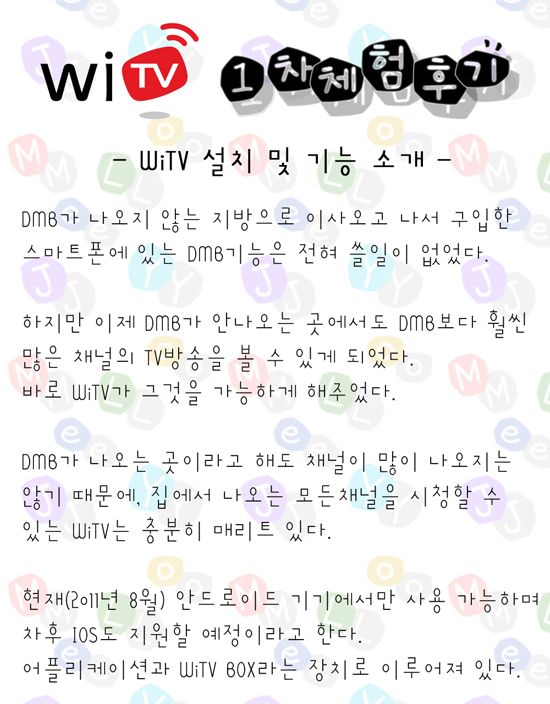 wiTV 1차체험후기
- WiTV 설치 및 기능 소개 -
DMB가 나오지 않는 지방으로 이사오고 나서 구입한
스마트폰에 있는 DMB기능은 전혀 쓸일이 없었다.
하지만 이제 DMB가 안나오는 곳에서도 DMB보다 훨씬
많은 채널의 TV방송을 볼 수 있게 되었다.
바로 WiTV가 그것을 가능하게 해주었다.
DMB가 나오는 곳이라고 해도 채널이 많이 나오지는
않기 때문에, 집에서 나오는 모든채널을 시청할 수
있는 WiTV는 충분히 매리트 있다.
현재(2011년 8월) 안드로이드 기기에서만 사용 가능하며
차후 IOS도 지원할 예정이라고 한다.
어플리케이션과 WiTV BOX라는 장치로 이루어져 있다.